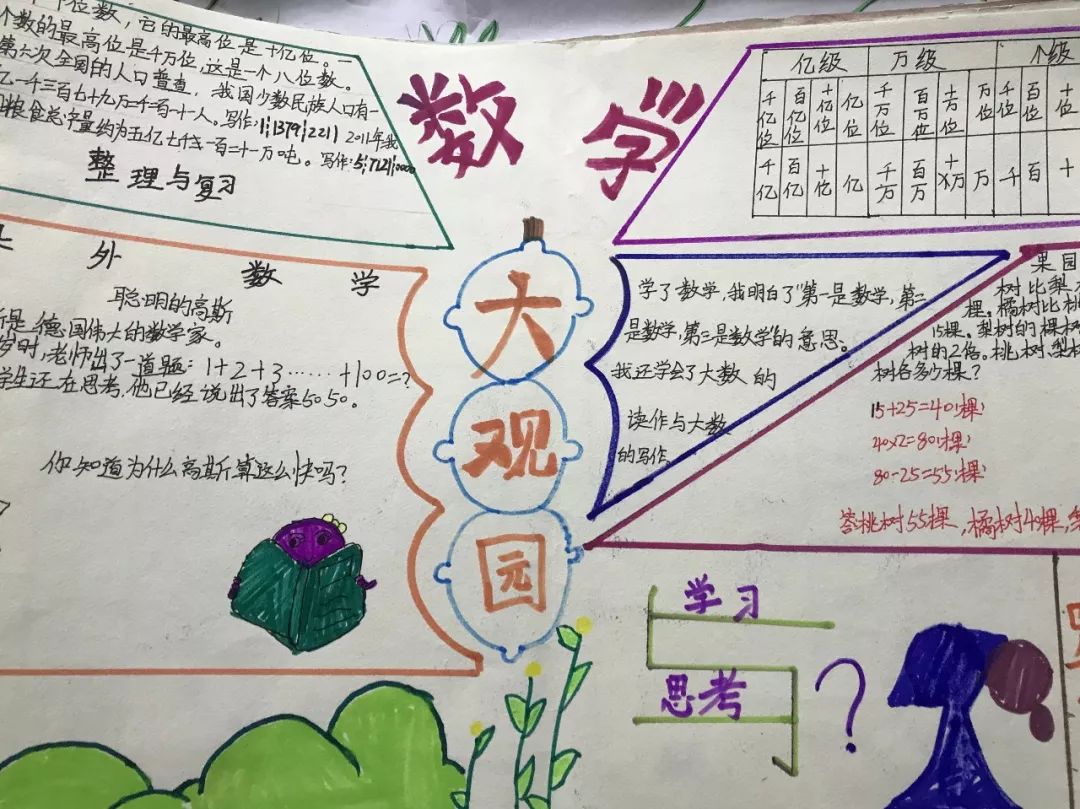 个位数，它的最高位是十亿位。一
个数的最高位是千万位，这是一个八位数。
第六次全国的人口普查，我国少数民族人口有一
亿一千三百七十九万二千二百一十人。写作：1|1379|2211 2011年我
国粮食总产量约为五亿七千一百二十一万吨。写作：5|7121|0000
整理与复习
数学
亿级 万级 个级
千亿位 百亿位 十亿位 亿位 千万位 百万位 十万位 万位 千位 百位 十位
千亿 百亿 十亿 亿 千万 百万 十万 万 千 百 十
大观园
外数学
聪明的高斯
斯是德国伟大的数学家。
岁时，老师出了一道题：1+2+3……+100=?
学生还在思考，他已经说出了答案5050。
你知道为什么高斯算这么快吗？
学了数学，我明白了"第一是数学，第二
是数学，第三是数学"的意思。
我还学会了大数的
读作与大数
的写作
果园
树比梨
棵。橘树比桃
15棵。梨树的棵树
树的2倍。桃树、梨树
树各多少棵？
15+25=40(棵)
40×2=80(棵)
80-25=55(棵)
答桃树55棵，橘树40棵，
学习
与
思考？